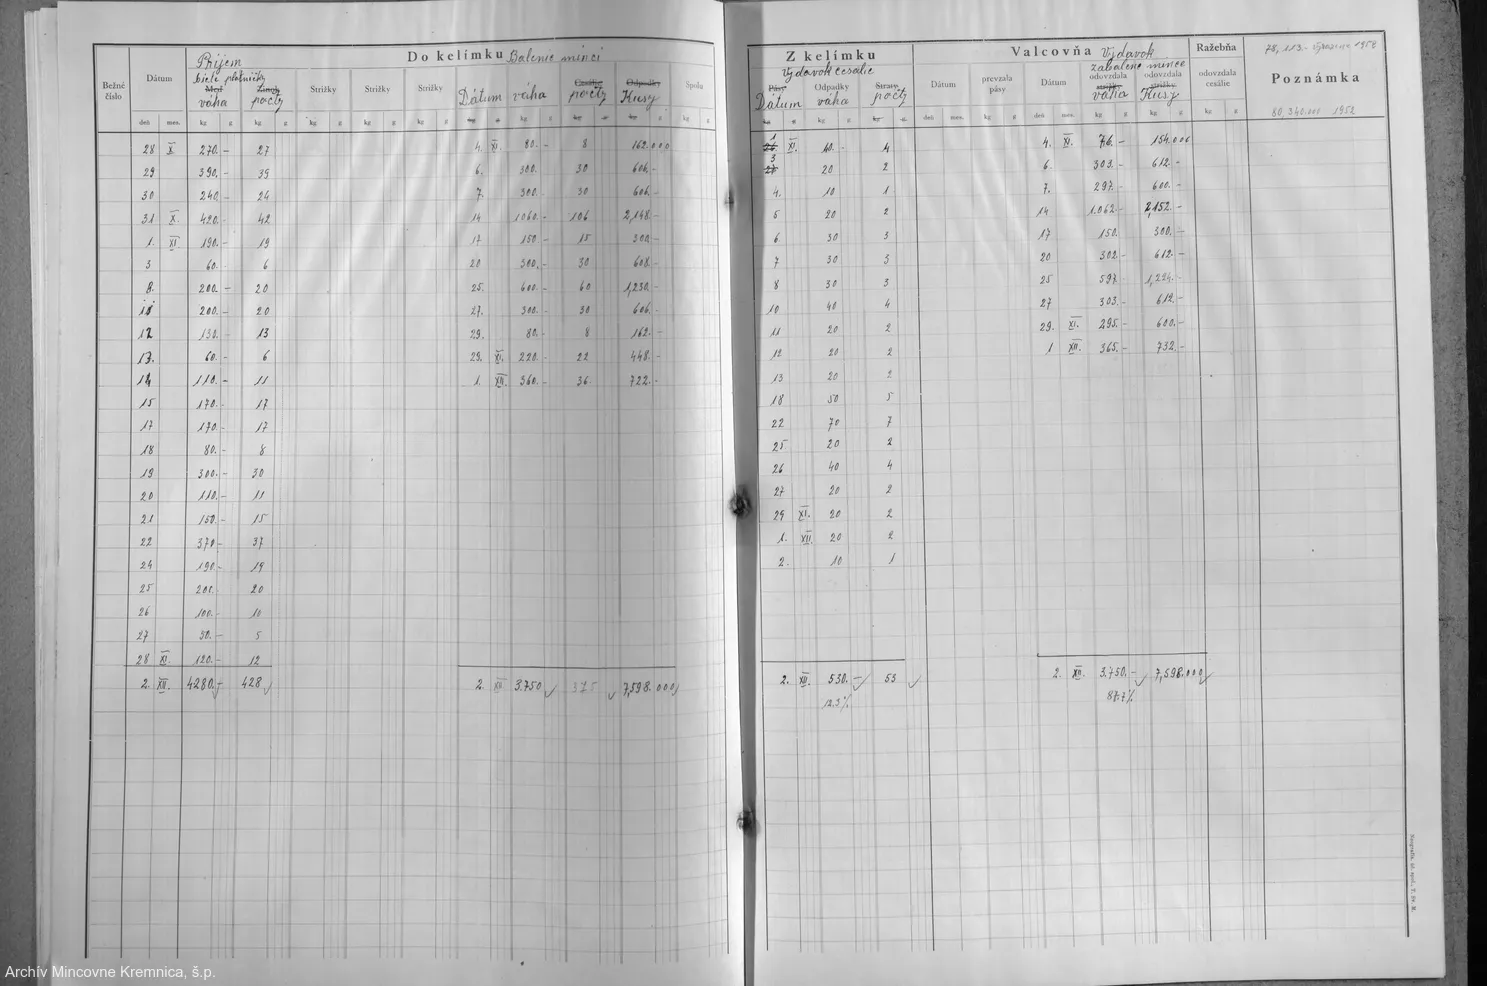 Do kelímku Balenie mincí
Bežné číslo
Dátum
Príjem
biele plátničky
váha
počty
Strižky
Strižky
Strižky
Dátum
váha
počty
Kusy
Spolu
deň mes. kg g kg g kg g kg g kg g kg g kg g
28 X 270.- 27 4. XI. 80.- 8 162.000
29 390.- 39 6. 300. 30 606.-
30 240.- 24 7. 300. 30 606.-
31 X. 420.- 42 14 1060.- 106 2,148.-
1. XI 190.- 19 17 150 - 15 300.-
3 60.- 6 20 300.- 30 608.-
8. 200.- 20 25. 600.- 60 1,230.-
200.- 20 27. 300.- 30 606.-
12 130.- 13 29. 80.- 8 162.-
13. 60.- 6 29. XI. 220.- 22 448.-
14 110.- 11 1. XII. 360.- 36 722.-
15 170.- 17
17 170.- 17
18 80.- 8
19 300.- 30
20 110.- 11
21 150.- 15
22 370.- 37
24 190.- 19
25 200.- 20
26 100.- 10
27 50.- 5
28 XI. 120.- 12
2. XII. 4280.- 428 2. XII 3.750 375 7,598.000
Z kelímku
Výdavok cesálie
Pásy
Dátum
Odpadky
váha
Straty
počty
Valcovňa Výdavok
zabalené mince
Dátum
prevzala pásy
Dátum
odovzdala
váha
odovzdala
Kusy
Ražebňa
odovzdala cesálie
78,113.-
Poznámka
80,340.000 1952
kg g kg g deň mes. kg g deň mes. kg g kg g kg g
1 XI. 40.- 4 4. XI. 76.- 154.000
3 20 2 6. 303.- 612.-
4. 10 1 7. 297.- 600.-
5 20 2 14 1.062.- 2,152.-
6. 30 3 17 150.- 300.-
7 30 3 20 302.- 612.-
8 30 3 25 597.- 1,224.-
10 40 4 27 303.- 612.-
11 20 2 29. XI. 295.- 600.-
12 20 2 1 XII. 365.- 732.-
13 20 2
18 50 5
22 70 7
25 20 2
26 40 4
27 20 2
29 XI. 20 2
1. XII. 20 2
2. 10 1
2. XII. 530.- 53 2. XII. 3.750.- 7,598.000
12.3% 87.7%
Archív Mincovne Kremnica, š.p.